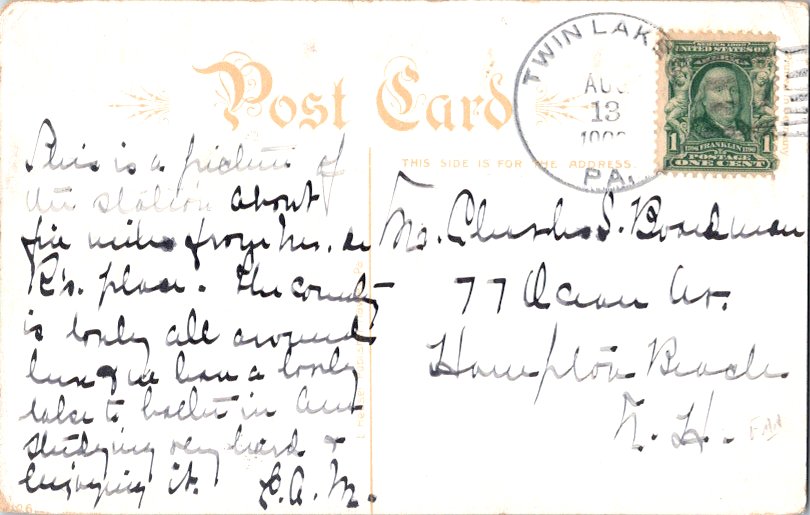 Post Card
THIS SIDE IS FOR THE ADDRESS.
TWIN LAKE
AUG
13
PA.
SERIES 1902
UNITED STATES OF
AMERICA
1 1706 FRANKLIN 1790 1
POSTAGE
ONE CENT
This is a picture of
the station about
five miles from Mrs. de
R's. place. The country
is lovely all around
here & we have a lovely
lake to bathe in. Am
studying very hard &
enjoying it. E. A. M.
Mr. Charles S. Boardman
77 Ocean Av.
Hampton Beach
N. H.